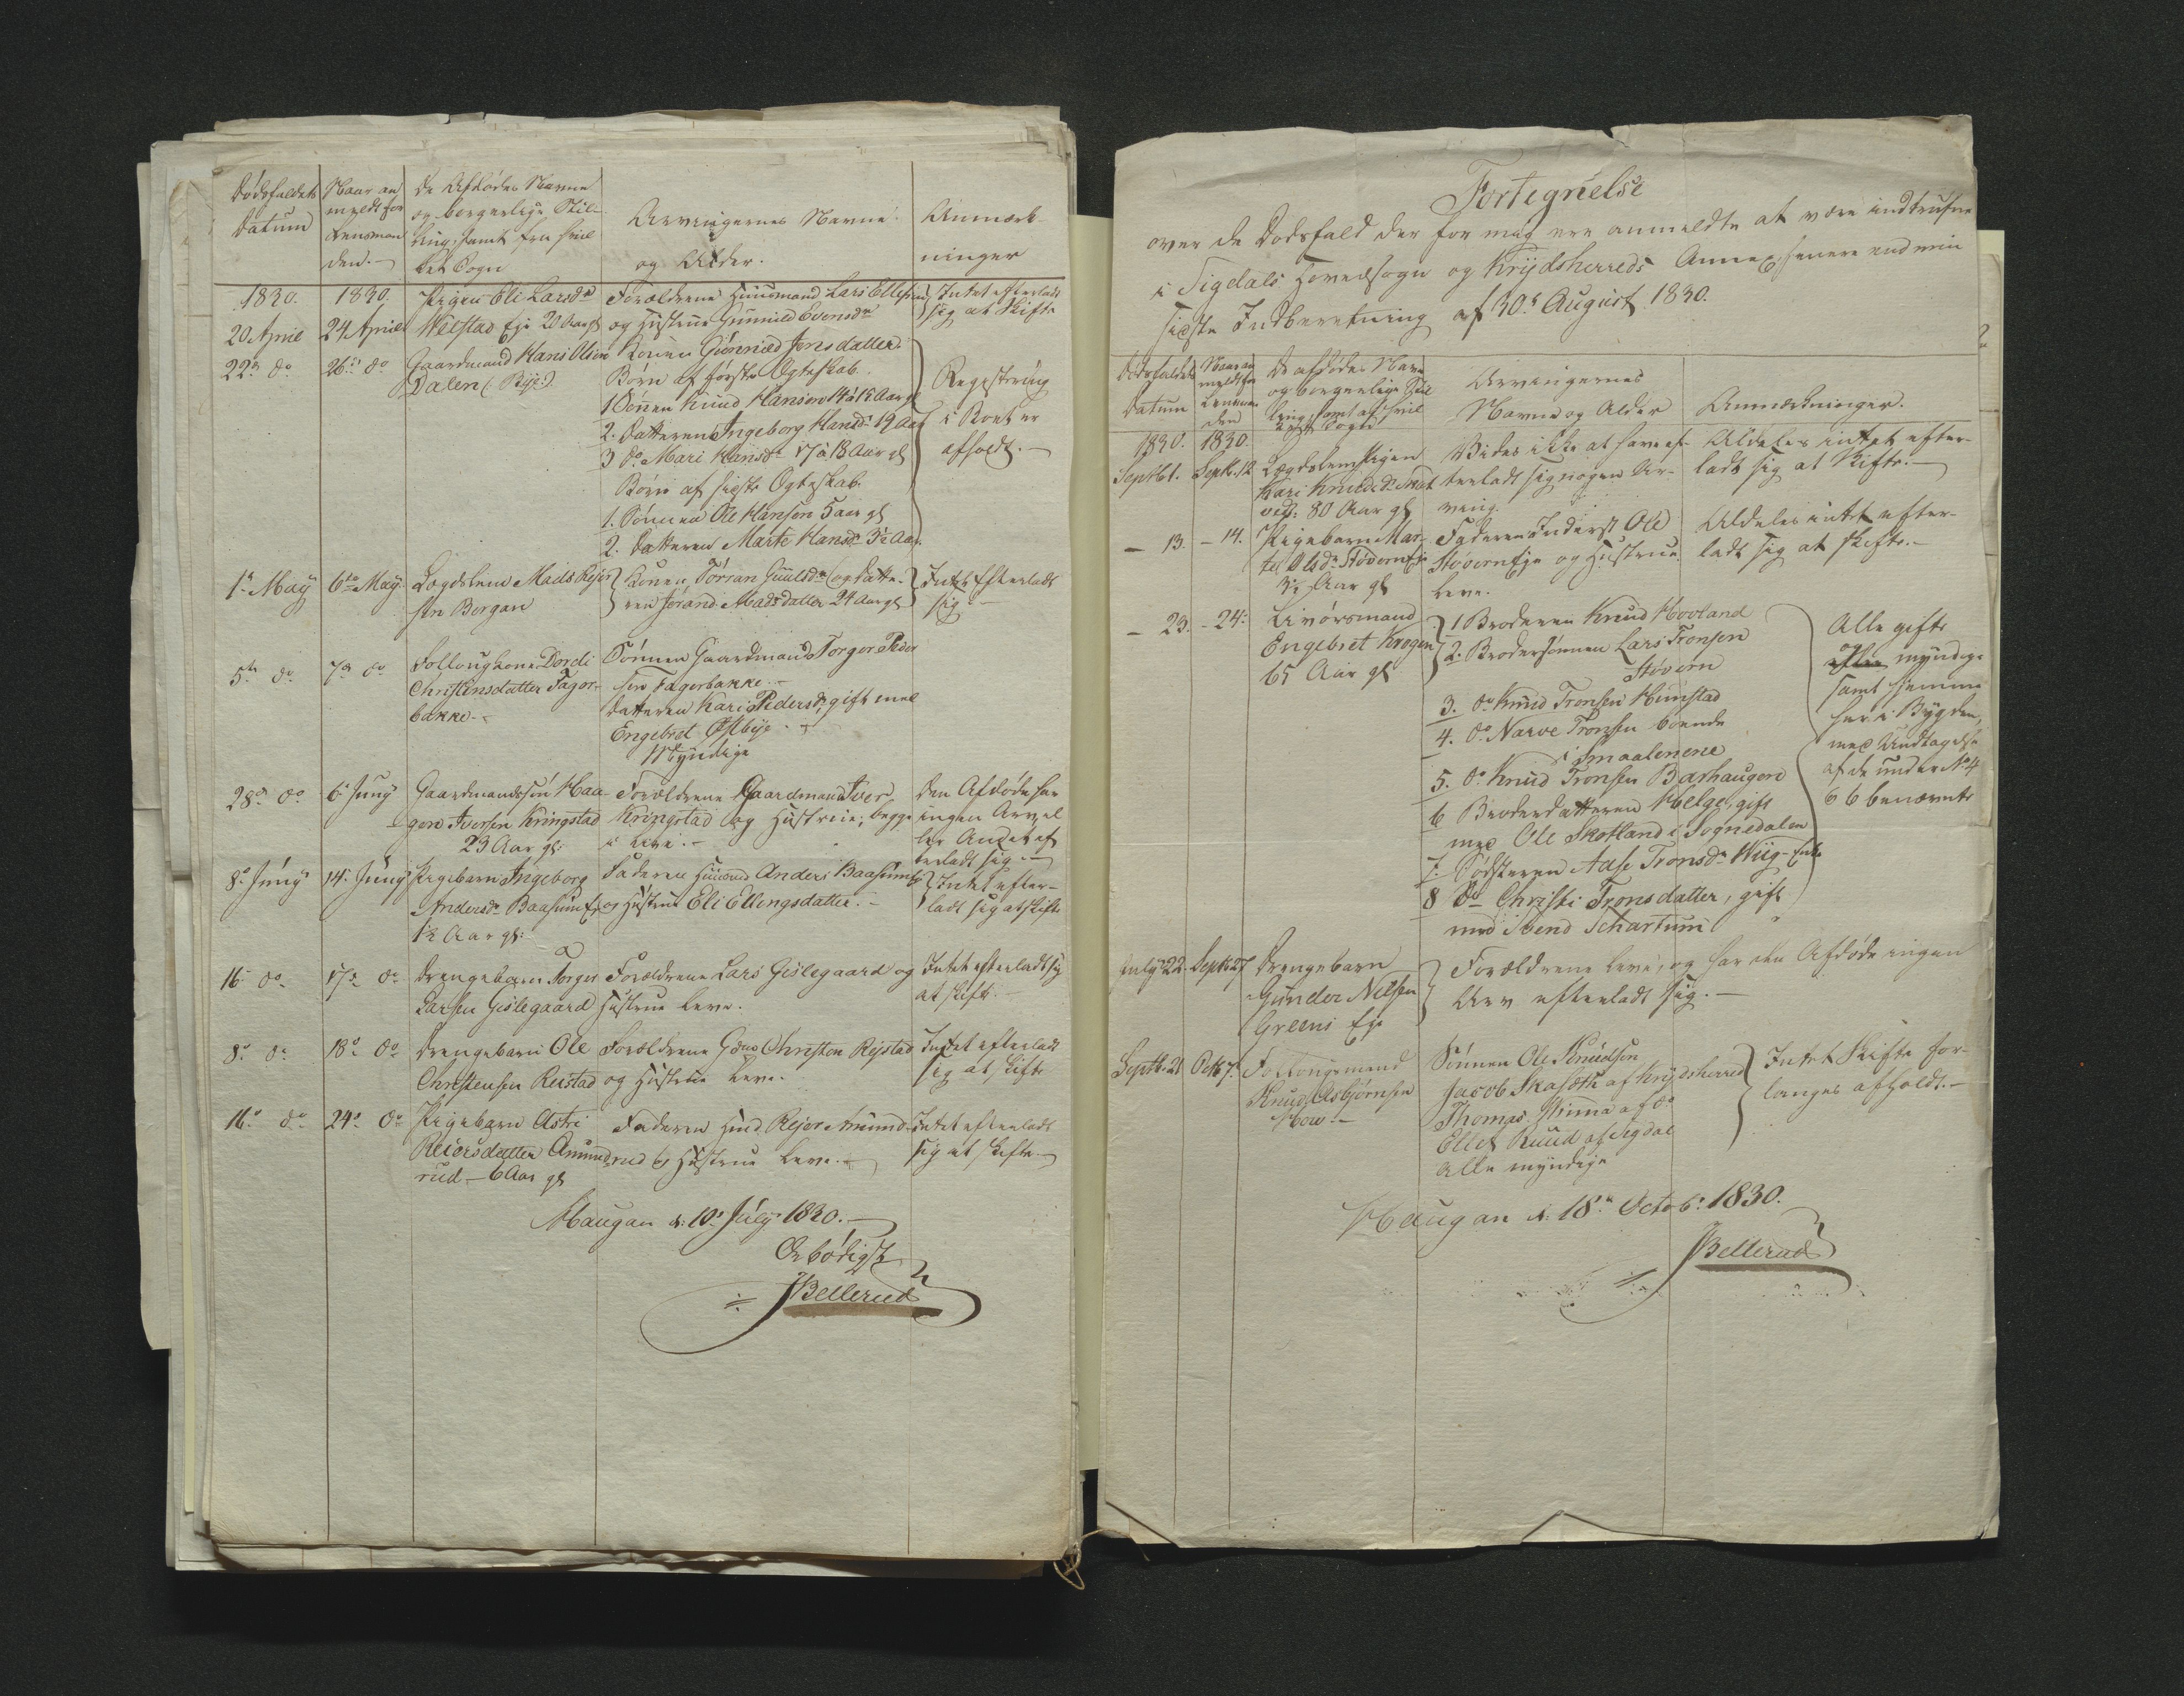 Dødsfaldets
Datum
Naar an
meldt for
Lensman
den.
De Afdødes Navne
og borgerlige Stil-
ling, samt fra hvil
ket Sogn
Arvingernes Navne
og Alder.
Anmærk-
ninger
1830. 1830.
20 April 24 April
Pigen Eli Larsdr
Welstad Eje 20 Aar gl
Forældrene Huusmand Lars Ellefsen
og Hustrue Gunnild Evensdr
Intet efterladt
sig at Skifte
22de do 26de do
Gaardmand Hans Olsen
Dalen (Bye:)
Konen Giønnild Jonsdatter.
Børn af første Ægteskab.
1 Sønen Knud Hansen 14 à 15 Aar gl
2. Datteren Ingeborg Hansdr 19 Aar
3 do Mari Hansdr 17 à 18 Aar gl
Børn af sidste Ægteskab.
1. Sønnen Ole Hansen 5 aar gl
2. Datteren Marte Hansdr 3½ Aar.
Registrering
i Boet er
afholdt.
1de May 6te May
Lægdslem Mads Rejer
sen Borgan
Konen Jørran Guulsdr og Datte-
ren Jørand Madsdatter 24 Aar gl
Intet Efterladt
sig.
5te do 7de do
Follougkone Dordi
Christensdatter Fager-
bakke.
Sønnen Gaardmand Torger Peder
sen Fagerbakke.
Datteren Kari Pedersdr, gift med
Engebret Østbye.
Myndige
28de do 6te Juny
Gaardmandssøn Haa-
gen Iversen Kringstad
23 Aar gl:
Forældrene Gaardmand Iver
Kringstad og Hustrue, begge
i Live.
Den Afdøde har
ingen Arv el
ler Andet ef
terladt sig.
8de Juny 14de Juny
Pigebarn Ingeborg
Andersdr Baasum Ej
1½ Aar gl:
Faderen Huusmd Anders Baasum Ej
og Hustrue Eli Ellingsdatter.
Intet efter-
ladt sig at skifte
16 do 17de do
Drengebarn Torger
Larsen Gislegaard
Forældrene Lars Gislegaard og
Hustrue leve.
Intet efterladt sig
at skifte.
8de do 18de do
Drengebarn Ole
Christensen Reistad
Forældrene Gdmd Christen Rejstad
og Hustrue leve.
Intet efterladt
sig at skifte
16de do 24de do
Pigebarn Astri
Reiersdatter Amund-
rud - 6 Aar gl
Faderen Hmd Rejer Amund-
rud og Hustrue leve.
Intet efterladt
sig at skifte
Haugan d: 10de July 1830.
Ærbødigst
JBellerud
Fortegnelse
over de Dødsfald der for mig ere anmeldte at være indtrufne
i Sigdals Hovedsogn og Krydsherreds Annex, senere end min
sidste Indberetning af 30te August 1830.
Dødsfaldets
Datum
Naar an
meldt for
Lensman
den
De afdødes Navn
og borgerlige Stil
ling, samt af hvil
ket Sogn
Arvingernes
Navne og Alder
Anmærkninger.
1830. 1830.
Septb 1. Septb. 12
Lægdslem Pigen
Kari Knudsdr
80 Aar gl
Vides ikke at have ef-
terladt sig nogen Ar-
ving.
Aldeles intet efter-
ladt sig at Skifte.
- 13. - 14.
Pigebarn Mar-
te Olsdr Støvern Eje
3½ Aar gl
Faderen Inderst Ole
Støvern Eje og Hustrue
leve.
Aldeles intet efter-
ladt sig at skifte.
- 23. - 24.
Livørsmand
Engebret Krogen
65 Aar gl
1 Broderen Knud Hovland
2. Brodersønnen Lars Tronsen
Støvern
3. do Knud Tronsen Hunstad
4. do Narve Tronsen boende
i Smaalenene
5. do Knud Tronsen Barhaugen
6 Broderdatteren Helge, gift
med Ole Skotland i Sognedalen
7. Sødsteren Aase Tronsdr Wiig - Enke
8 do Christi Tronsdatter, gift
med Svend Schartum
Alle gifte
og myndige
samt hjemme
her i Bygden,
med Undtagelse
af de under No 4
& 6 benævnte
July 22. Septb 27
Drengebarn
Gunder Nilsen
Greens Eje
Forældrene leve, og har den Afdøde ingen
Arv efterladt sig.
Septb. 21 Octb 7.
Follougsmand
Knud Asbjørnsen
Moen.
Sønnen Ole Knudsen
Jacob Skasæth af Krydsherred
Thomas Winna af do
Ellef Ruud af Sigdal
Alle myndige
Intet Skifte for-
langes afholdt.
Haugan d: 18de Octob: 1830.
JBellerud